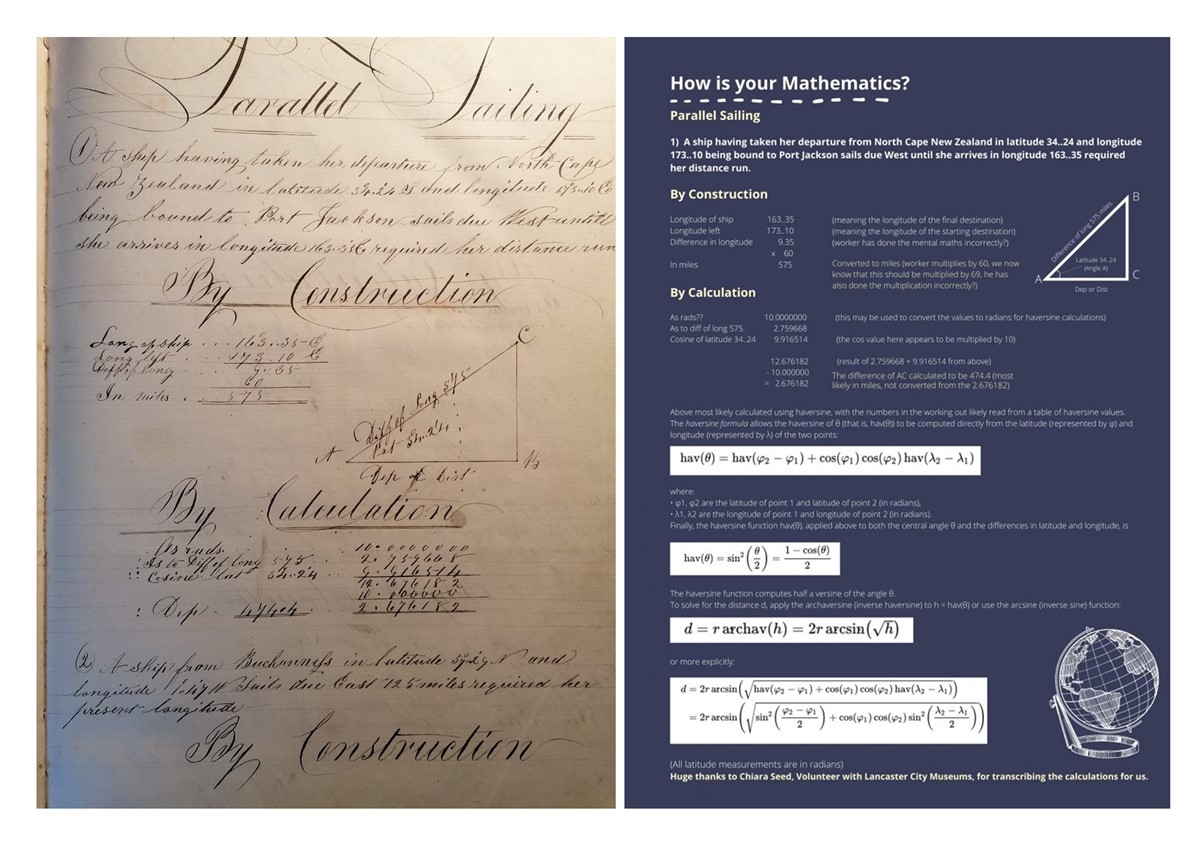 Parallel Sailing
① A ship having taken her departure from North Cape
New Zealand in latitude 34..24 S and longitude 173..10 E
being bound to Port Jackson sails due West untill
she arrives in longitude 163..35 E required her distance run
By Construction
Long of ship . . . 163..35 E
Long left . . . 173..10 E
Diff of long 9..35
60
In miles . 575
C
Diff of Long 575
Lat 34..24
A
B
Dep or Dist
By Calculation
As rads. 10.0000000
: Is to Diff of long 575 2.759668
:: Cosine lat 34..24 9.916514
12.676182
10.000000
: Dep 474.4 2.676182
② A ship from Buchanness in latitude 57..29 N and
longitude 1..47 W Sails due East 125 miles required her
present longitude
By Construction
How is your Mathematics?
Parallel Sailing
1) A ship having taken her departure from North Cape New Zealand in latitude 34..24 and longitude
173..10 being bound to Port Jackson sails due West until she arrives in longitude 163..35 required
her distance run.
By Construction
Longitude of ship 163..35 (meaning the longitude of the final destination)
Longitude left 173.10 (meaning the longitude of the starting destination)
Difference in longitude 9.35 (worker has done the mental maths incorrectly?)
x 60
In miles 575 Converted to miles (worker multiplies by 60, we now
know that this should be multiplied by 69, he has
also done the multiplication incorrectly?)
B
Difference of long 575 miles
Latitude 34..24
(Angle A)
A
C
Dep or Dist
By Calculation
As rads?? 10.0000000 (this may be used to convert the values to radians for haversine calculations)
As to diff of long 575. 2.759668
Cosine of latitude 34..24 9.916514 (the cos value here appears to be multiplied by 10)
12.676182 (result of 2.759668 + 9.916514 from above)
- 10.000000 The difference of AC calculated to be 474.4 (most
= 2.676182 likely in miles, not converted from the 2.676182)
Above most likely calculated using haversine, with the numbers in the working out likely read from a table of haversine values.
The haversine formula allows the haversine of θ (that is, hav(θ)) to be computed directly from the latitude (represented by φ) and
longitude (represented by λ) of the two points:
hav(θ) = hav(φ₂ − φ₁) + cos(φ₁) cos(φ₂) hav(λ₂ − λ₁)
where:
• φ1, φ2 are the latitude of point 1 and latitude of point 2 (in radians),
• λ1, λ2 are the longitude of point 1 and longitude of point 2 (in radians).
Finally, the haversine function hav(θ), applied above to both the central angle θ and the differences in latitude and longitude, is
hav(θ) = sin²(θ/2) = (1 − cos(θ))/2
The haversine function computes half a versine of the angle θ.
To solve for the distance d, apply the archaversine (inverse haversine) to h = hav(θ) or use the arcsine (inverse sine) function:
d = r archav(h) = 2r arcsin(√h)
or more explicitly:
d = 2r arcsin(√(hav(φ₂ − φ₁) + cos(φ₁) cos(φ₂) hav(λ₂ − λ₁)))
= 2r arcsin(√(sin²((φ₂ − φ₁)/2) + cos(φ₁) cos(φ₂) sin²((λ₂ − λ₁)/2)))
(All latitude measurements are in radians)
Huge thanks to Chiara Seed, Volunteer with Lancaster City Museums, for transcribing the calculations for us.